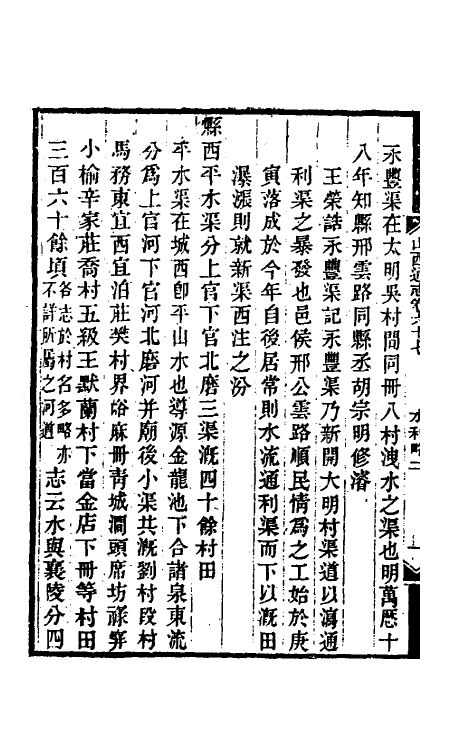 永豐渠在太明吳村間同冊八村洩水之渠也明萬厯十
八年知縣邢雲路同縣丞胡宗明修濬
王榮誥永豐渠記永豐渠乃新開大明村渠道以瀉通
利渠之暴發也邑侯邢公雲路順民情為之工始於庚
寅落成於今年自後居常則水流通利渠而下以溉田
瀑漲則就新渠西注之汾
縣西平水渠分上官下官北磨三渠溉四十餘村田
平水渠在城西卽平山水也導源金龍池下合諸泉東流
分為上官河下官河北磨河并廟後小渠共溉劉村段村
馬務東宜西宜泊莊樊村界峪麻冊靑城澗頭席坊祿穽
小榆辛家莊喬村五級王默蘭村下當金店下冊等村田
三百六十餘頃各志於村名多略亦不詳所為之河道志云水與襄陵分四
山西通志卷六十七 水利略二 一